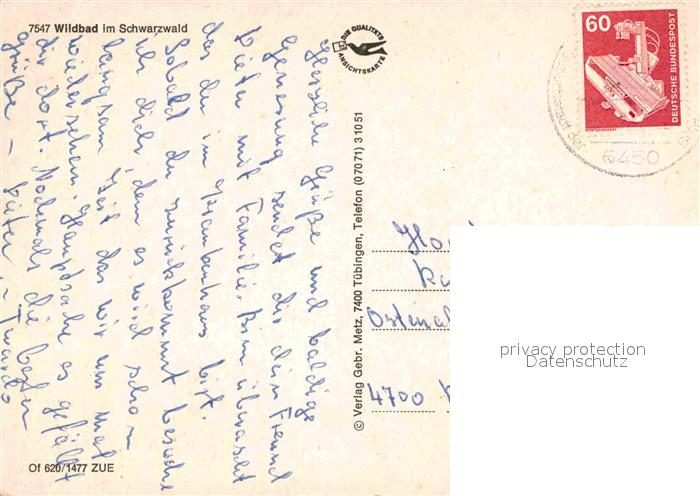 7547 Wildbad im Schwarzwald
DIE QUALITÄTS
ANSICHTSKARTE
60
DEUTSCHE BUNDESPOST
RÖNTGENGERÄT
6450
Herzliche Grüße und baldige
Genesung sendet dir dein Freund
Dieter mit Familie. Bin überrascht
das du im Krankenhaus bist.
Sobald du zurückkommst besuche
ich dich, denn es wird schon
langsam Zeit das wir uns mal
wiedersehen. Hauptsache es gefällt
dir dort. Nochmals die besten
Grüße - Dieter
© Verlag Gebr. Metz, 7400 Tübingen, Telefon (07071) 3 10 51
4700
privacy protection
Datenschutz
Of 620/1477 ZUE